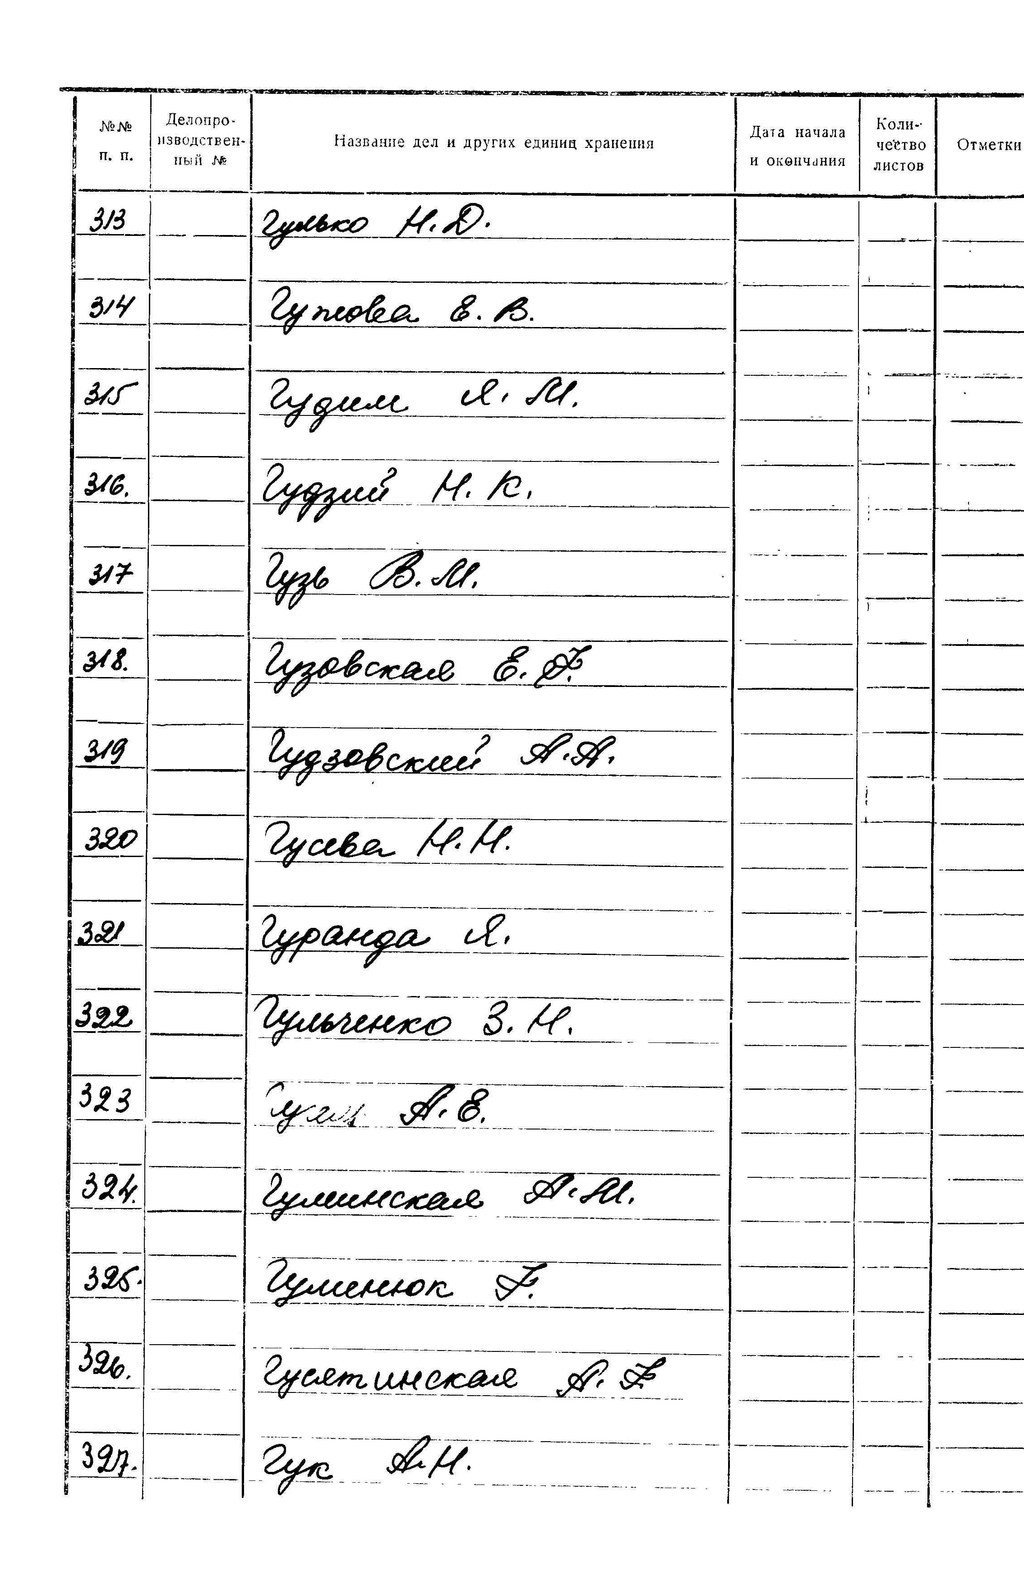 №№ п. п. Делопроизводствен-ный № Название дел и других единиц хранения Дата начала и окончания Коли-чество листов Отметки
313 Гулько Н. Д.
314 Гужова Е. В.
315 Гудим Я. М.
316. Гудзий Н. К.
317 Гузь В. М.
318. Гузовская Е. Ф.
319 Гудзовский А. А.
320 Гусева Н. Н.
321 Гуранда Я.
322 Гульченко З. Н.
323 А. Е.
324. Гуминская А. М.
325. Гуменюк Г.
326. Гусятинская А. Г.
327. Гук А. Н.